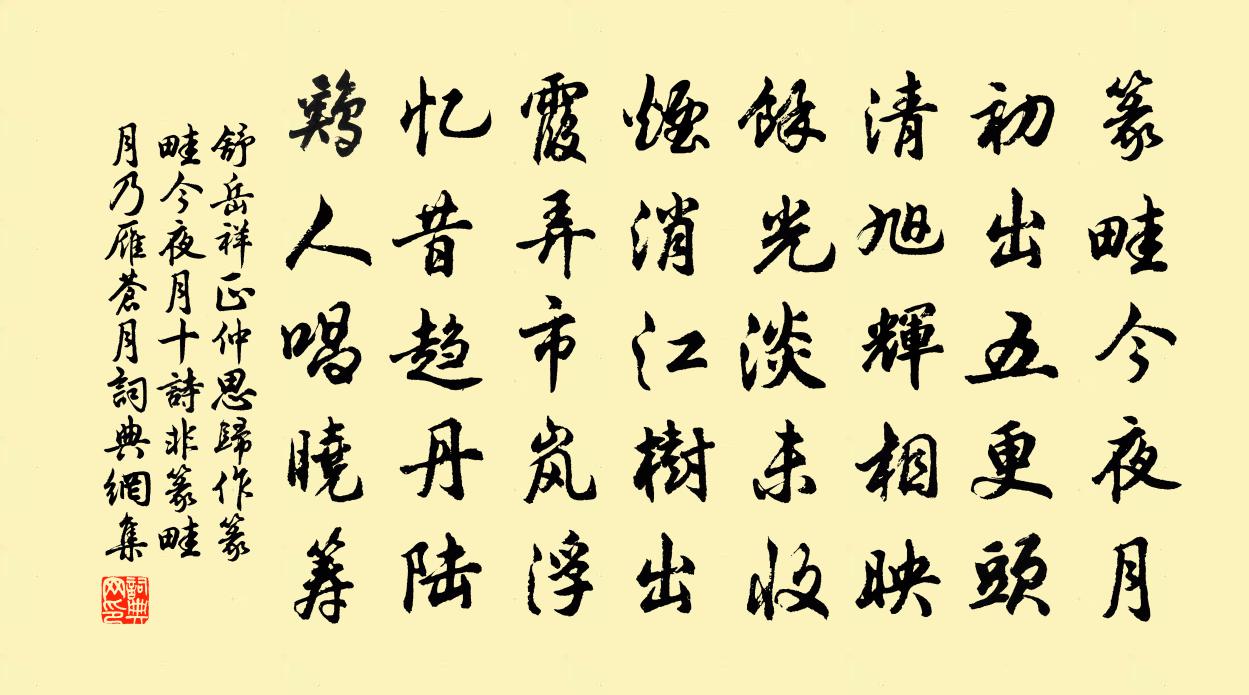 篆畦今夜月
初出五更頭
清旭輝相映
餘光淡未收
煙消江樹出
霞弄市岚浮
忆昔趋丹陆
鷄人唱曉筹
舒岳祥正仲思歸作篆
畦今夜月十詩非篆畦
月乃雁蒼月詞典網集
詞典
网印